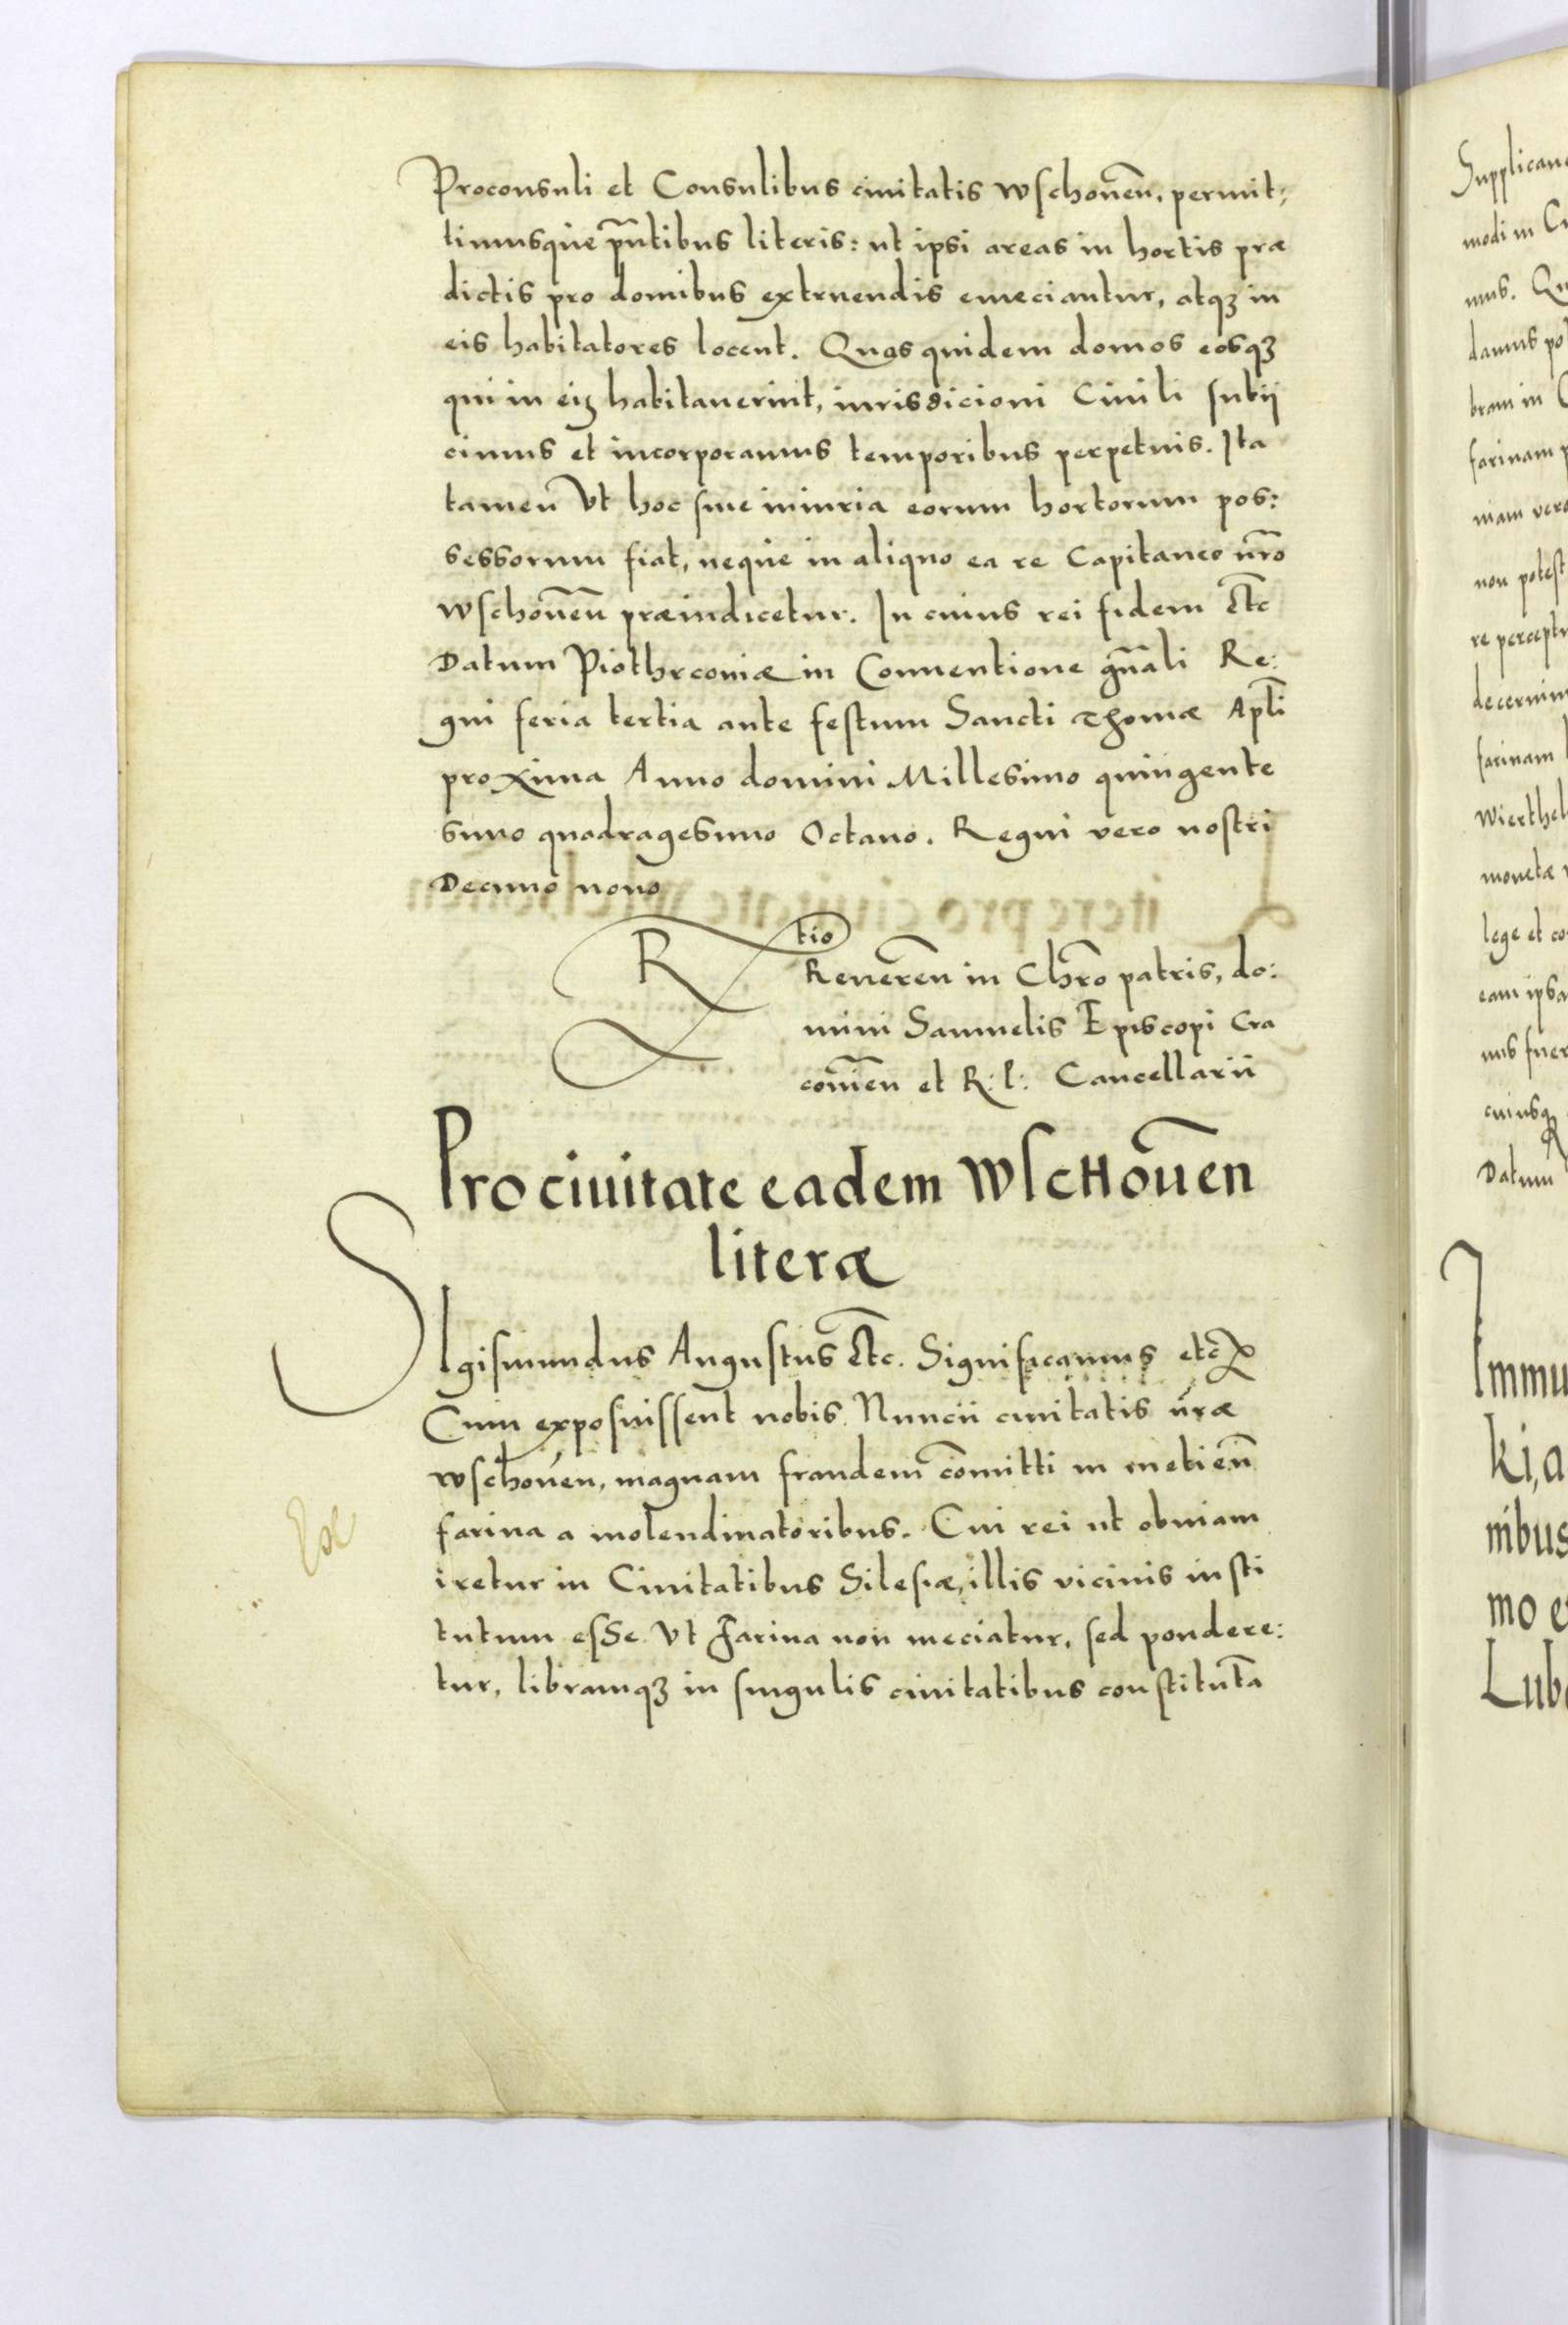 Proconsuli et Consulibus ciuitatis wschouen̄, permit:
timusque pn̄tibus literis: ut ipsi areas in hortis præ
dictis pro domibus extruendis emeciantur, atqꝫ in
eis habitatores locent. Quas quidem domos eosqꝫ
qui in eis habitauerint, iurisdicioni Ciuili subii
cimus et incorporamus temporibus perpetuis. Ita
tamen Vt hoc sine iniuria eorum hortorum pos:
sessorum fiat, neque in aliquo ea re Capitaneo nr̄o
wschouen̄ præiudicetur. In cuius rei fidem Etc̄
Datum Piothrcouiæ in Conuentione gn̄ali Re:
gni feria tertia ante festum Sancti Thomæ Apl̄i
proxima Anno domini Millesimo quingente
simo quadragesimo Octauo. Regni vero nostri
Decimo nono
R tio
Reueren̄ in Chr̄o patris, do:
mini Samuelis Episcopi Cra
couien̄ et R: P: Cancellarii
Pro ciuitate eadem Wschouen̄
literæ
SIgismundus Augustus Etc̄. Significamus etc̄
Cum exposuissent nobis Nuncii ciuitatis nr̄æ
wschouen̄, magnam fraudem com̄itti in metien̄
farina a molendinatoribus. Cui rei ut obuiam
iretur in Ciuitatibus Silesiæ, illis vicinis insti
tutum esse Vt Farina non meciatur, sed pondere:
tur, libramqꝫ in singulis ciuitatibus constituta
Supplican
modi in
mus.
damus
bram in
farinam
niam vero
non potest
re
decernim
farinam
monetæ
lege et co
eam ipsa
cuiusqꝫ
Datum
Immu
ki, a
nibus
mo e
Lub